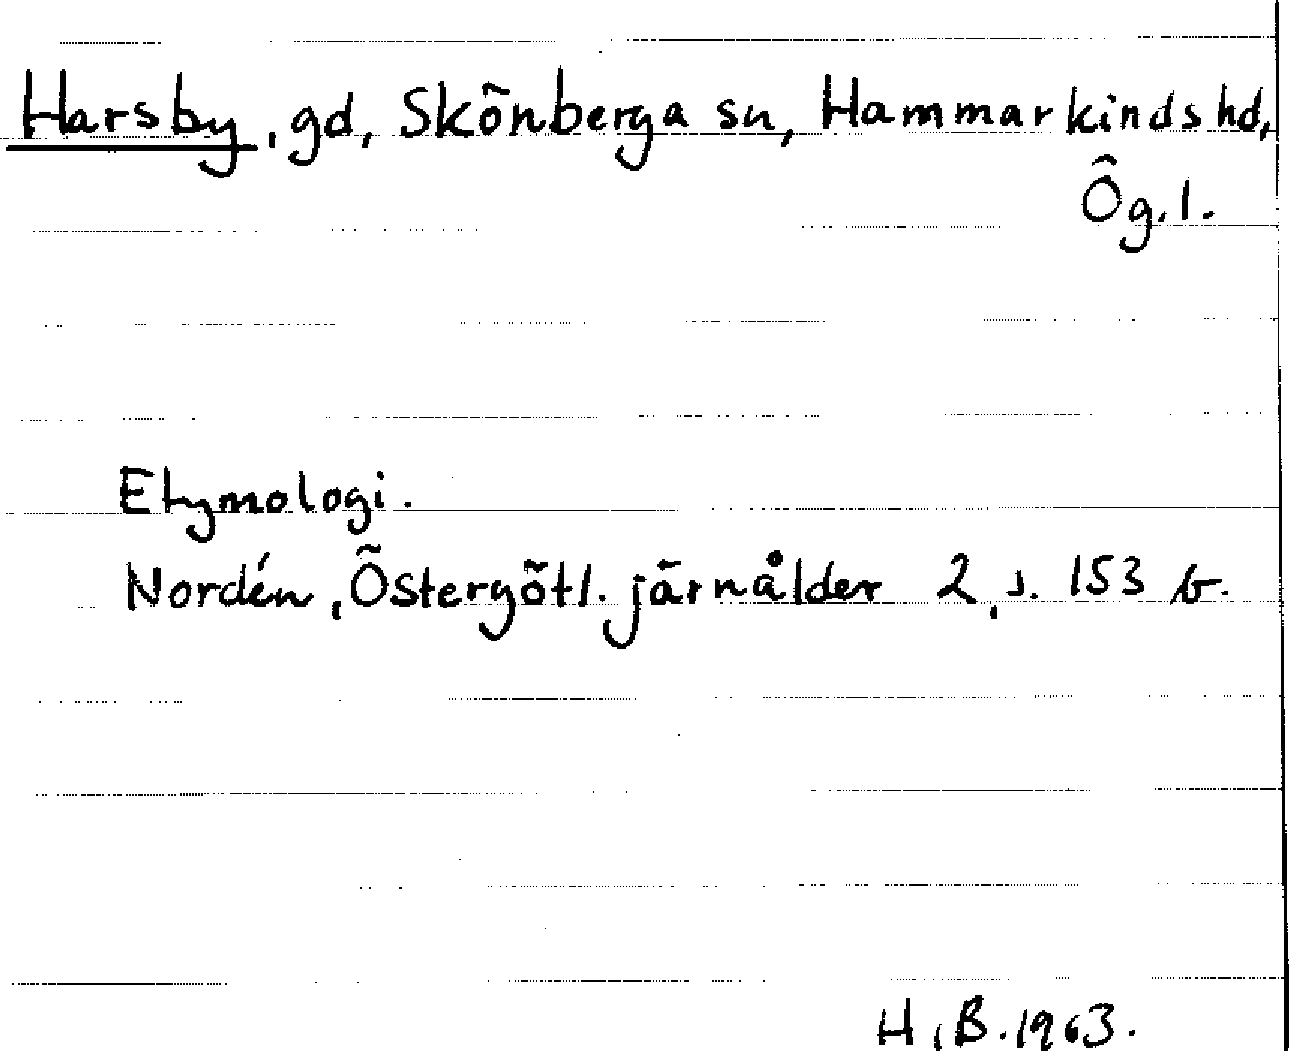 Harsby, gd, Skönberga sn, Hammarkinds hd,
Ög. l.
Etymologi.
Nordén, Östergötl. järnålder 2, s. 153 b.
H. B. 1963.